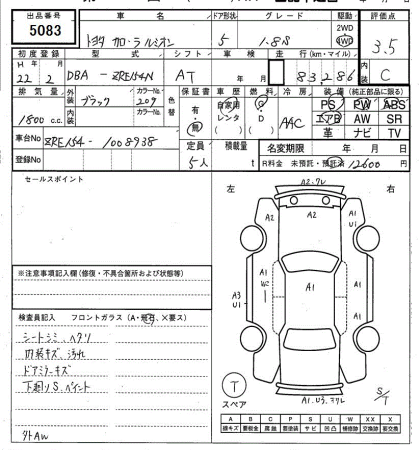 出品番号 車名 ドア形状 グレード 駆動 評価点
5083 トヨタ カローラルミオン 5 1.8S 2WD 4WD 3.5
初度登録 型式 シフト 車検 走行(km・マイル) 内装
H 年 月 22 2 DBA - ZRE154N AT 年 月 83,286 C
排気量 外装 ブラック カラーNo 209 色替 保証書 車歴 燃料 冷房 装備 (純正部品に限る)
1800 c.c. 内装 カラーNo 有・無 自家用 レンタ G・D AAC PS PW ABS
エアB AW SR
革 ナビ TV
車台No ZRE154 - 1008938 定員 積載量 名変期限 年 月 日
登録No 5人 t R料金 未預託・預託済 12600 円
セールスポイント
左 右
A2.フレ
A2 A2 A1 U1
A1 A1 A1
A3 U1
※注意事項記入欄(修復・不具合箇所および状態等)
検査員記入 フロントガラス(A・飛石、X要ス)
シートシミ、ヘタリ
内装キズ、汚れ
ドアミラーキズ
下廻りS、ペイント
外AW
T
スペア
S/T
A B C P S U W X XX
線キズ 要鈑金 腐蝕 要塗装 サビ 凹凸 補修跡 交換跡 要交換